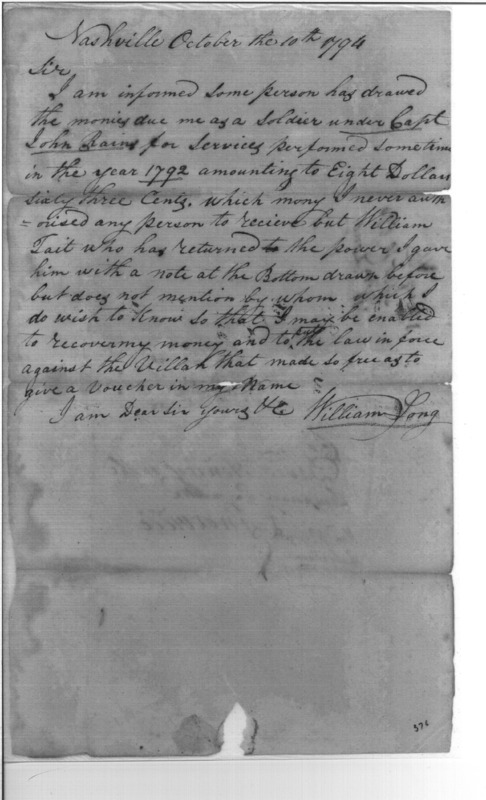 Nashville October the 10th 1794
Sir
I am informed Some person has drawed
the monies due me as a Soldier under Capt
John Rains for Services performed sometime
in the year 1792 amounting to Eight Dollars
sixty three Cents, which mony I never auth
=orised any person to recieve but William
Tait who has returned to the power I gave
him with a note at the Bottom drawn before
but does not mention by whom which I
do wish to Know so that I may be enabled
to recover my money and to the law in force
against the Villan that made so free as to
give a Voucher in my Name
I am Dear Sir Yours &c William Long
376